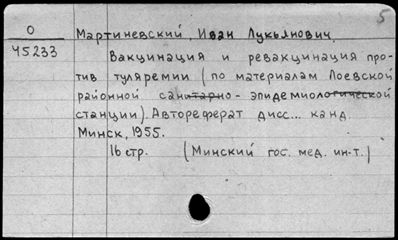 5
О
45233
Мартиневский, Иван Лукьянович.
Вакцинация и ревакцинация про-
тив туляремии (по материалам Лоевской
районной санитарно-эпидемиологической
станции). Автореферат дисс... канд.
Минск, 1955.
16 стр. (Минский гос. мед. ин-т.)